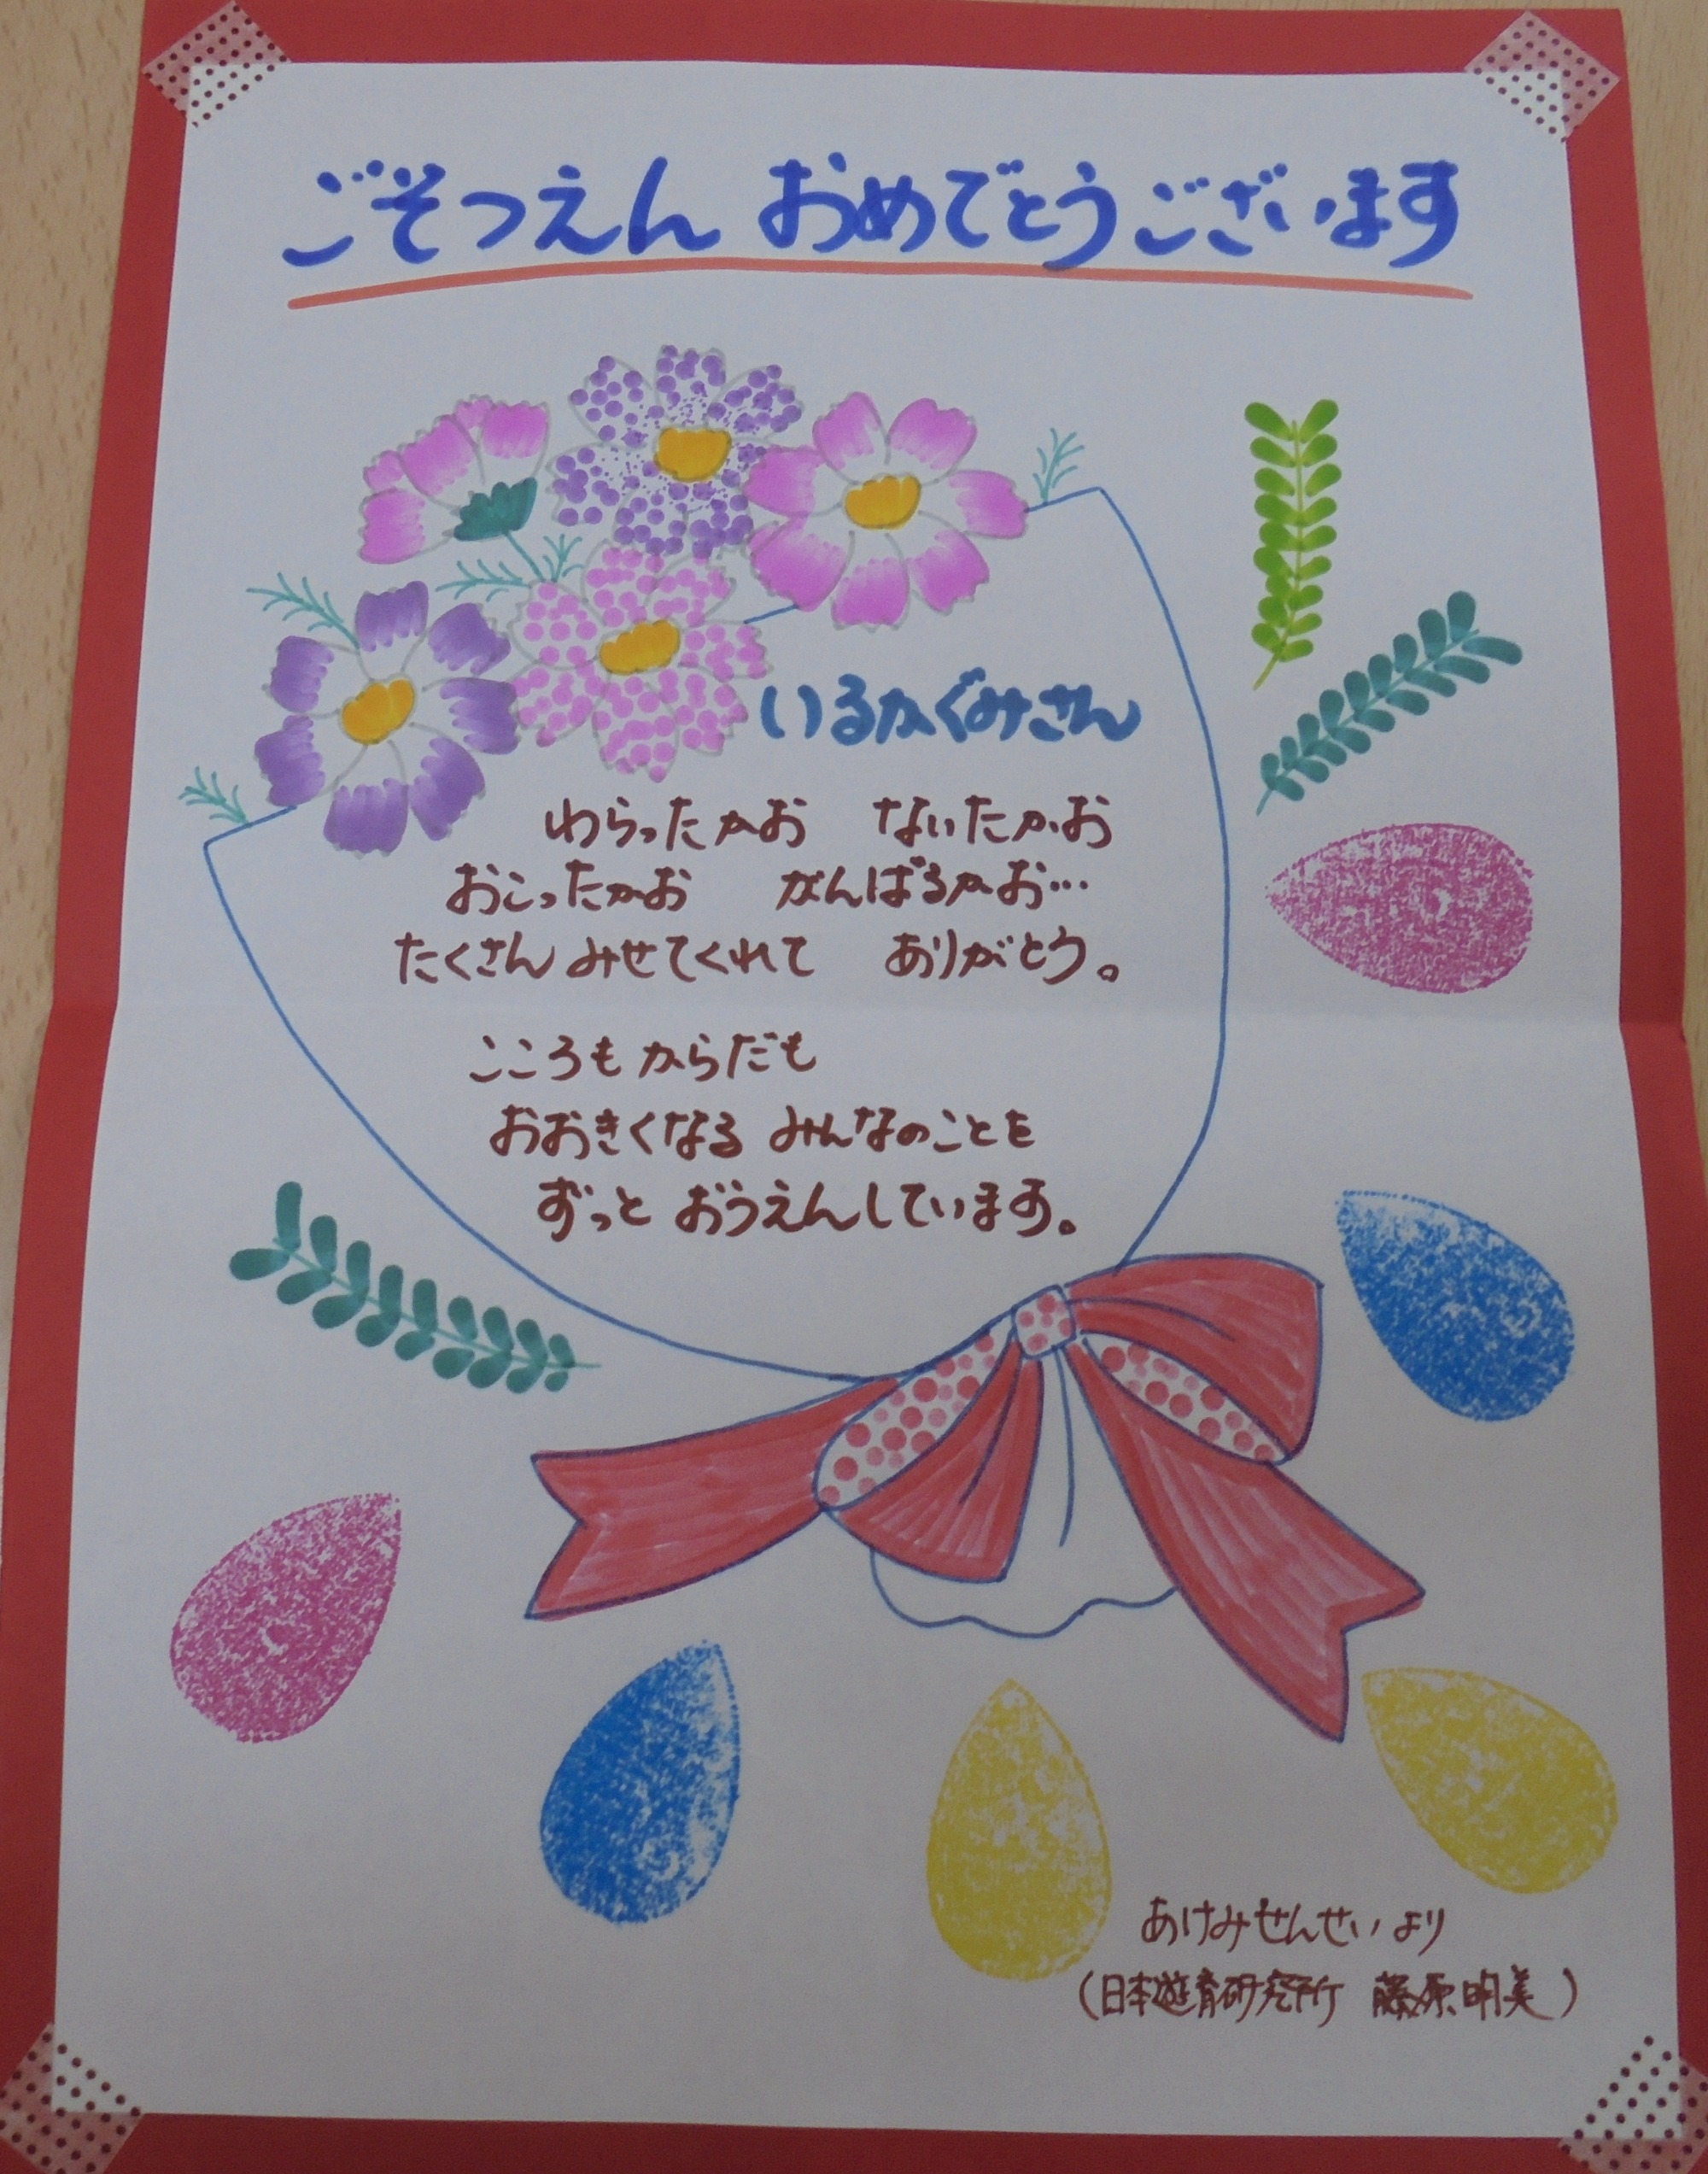 ごそつえん おめでとうございます
いるかぐみさん
わらったかお ないたかお
おこったかお がんばるかお…
たくさん みせてくれて ありがとう。
こころも からだも
おおきくなる みんなのことを
ずっと おうえんしています。
あけみせんせい より
(日本遊育研究所 藤原明美)